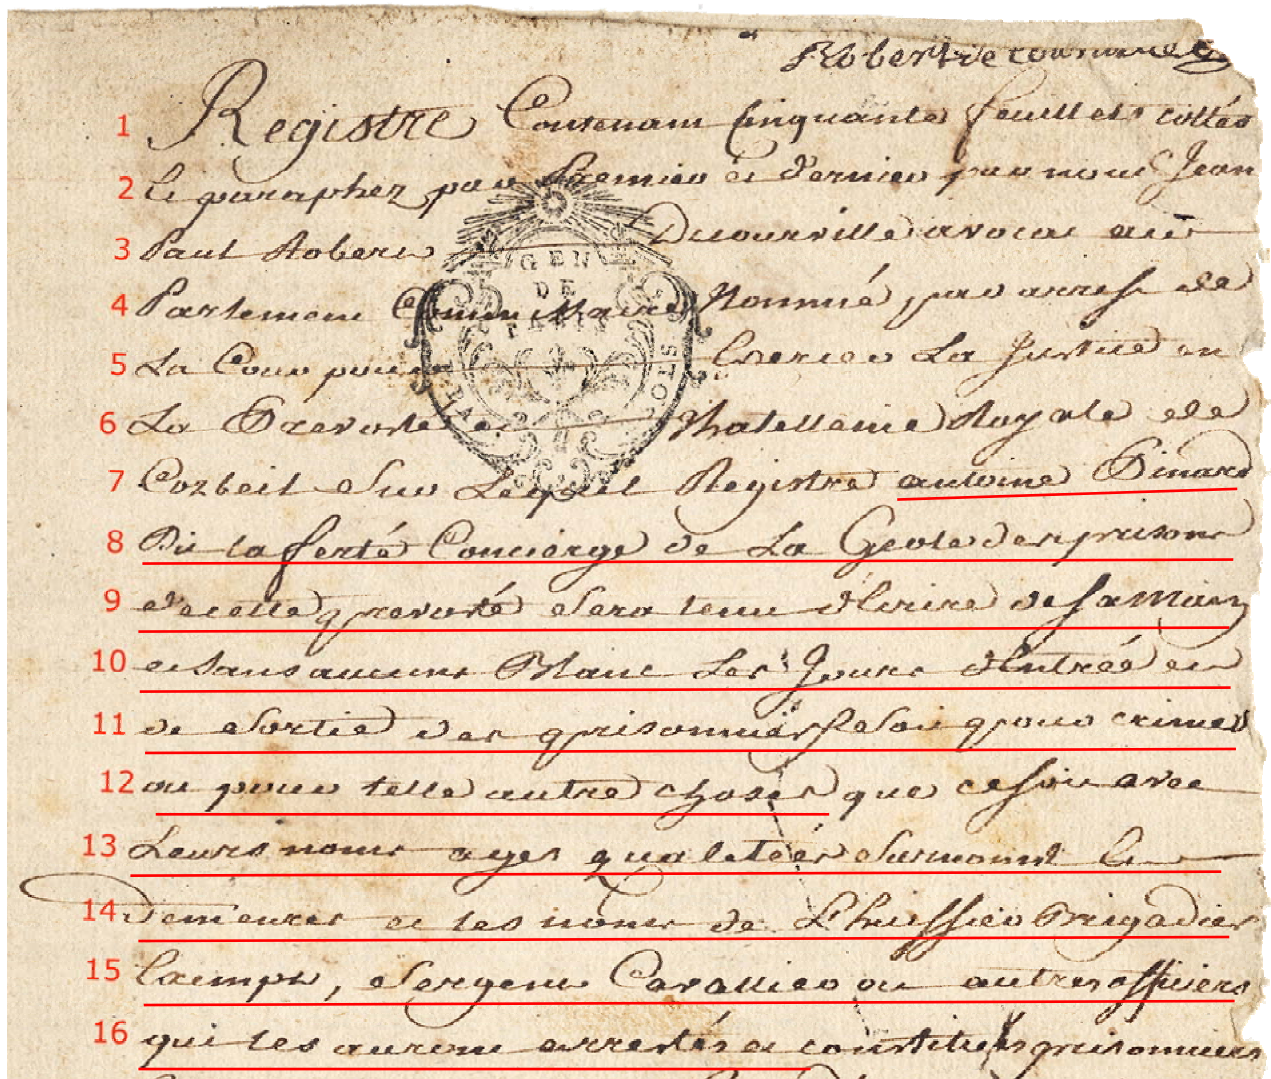 Robert de courville
1 Registre Contenant Cinquante feuillets cottés
2 Et paraphez par Premier et dernier par nous Jean
3 Paul Robert Decourville avocat au
4 Parlement Commissaire Nommé par arrest de
5 La Cour pour Exercer La Justice en
6 La Prevosté et Chatellenie Royale de
7 Corbeil Sur Lequel Registre antoine Dinard
8 Dit la ferté Concierge de La Geole des prisons
9 de cette prevoté Sera tenu d'Ecrire de Sa Main
10 et Sans aucuns Blanc Les Jours d'Entrée et
11 de Sortie des prisonniers Soit pour crimes
12 ou pour telle autre choses que ce soit avec
13 Leurs noms ages qualetées Surnoms Et
14 demeures et les noms de L'huissier Brigadier
15 Exempt, Sergent Cavallier ou autres officiers
16 qui les auront arrestés et constitués prisonniers
GEN
DE
PARIS